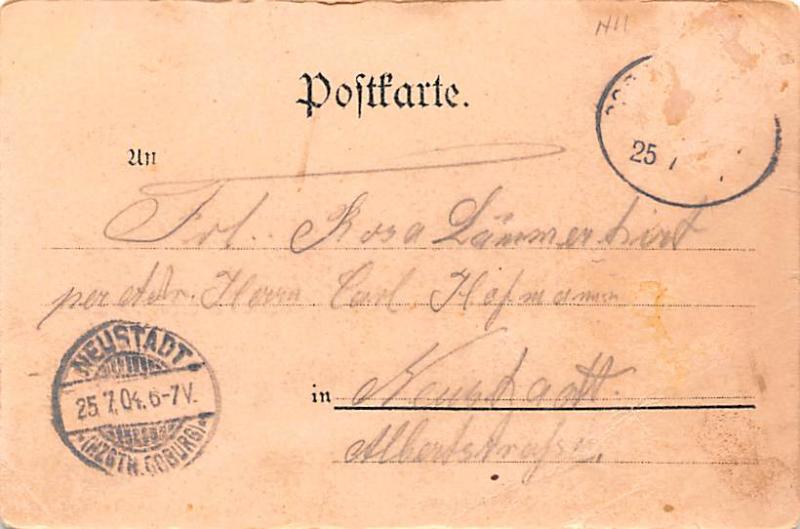 Postkarte.
An
25
Frl. Rosa Lämmerhirt
per Adr. Herrn Carl Hofmann
in Neustadt.
Albertstraße.
NEUSTADT
25.7.04. 6-7V.
*(HZGTH. COBURG)*